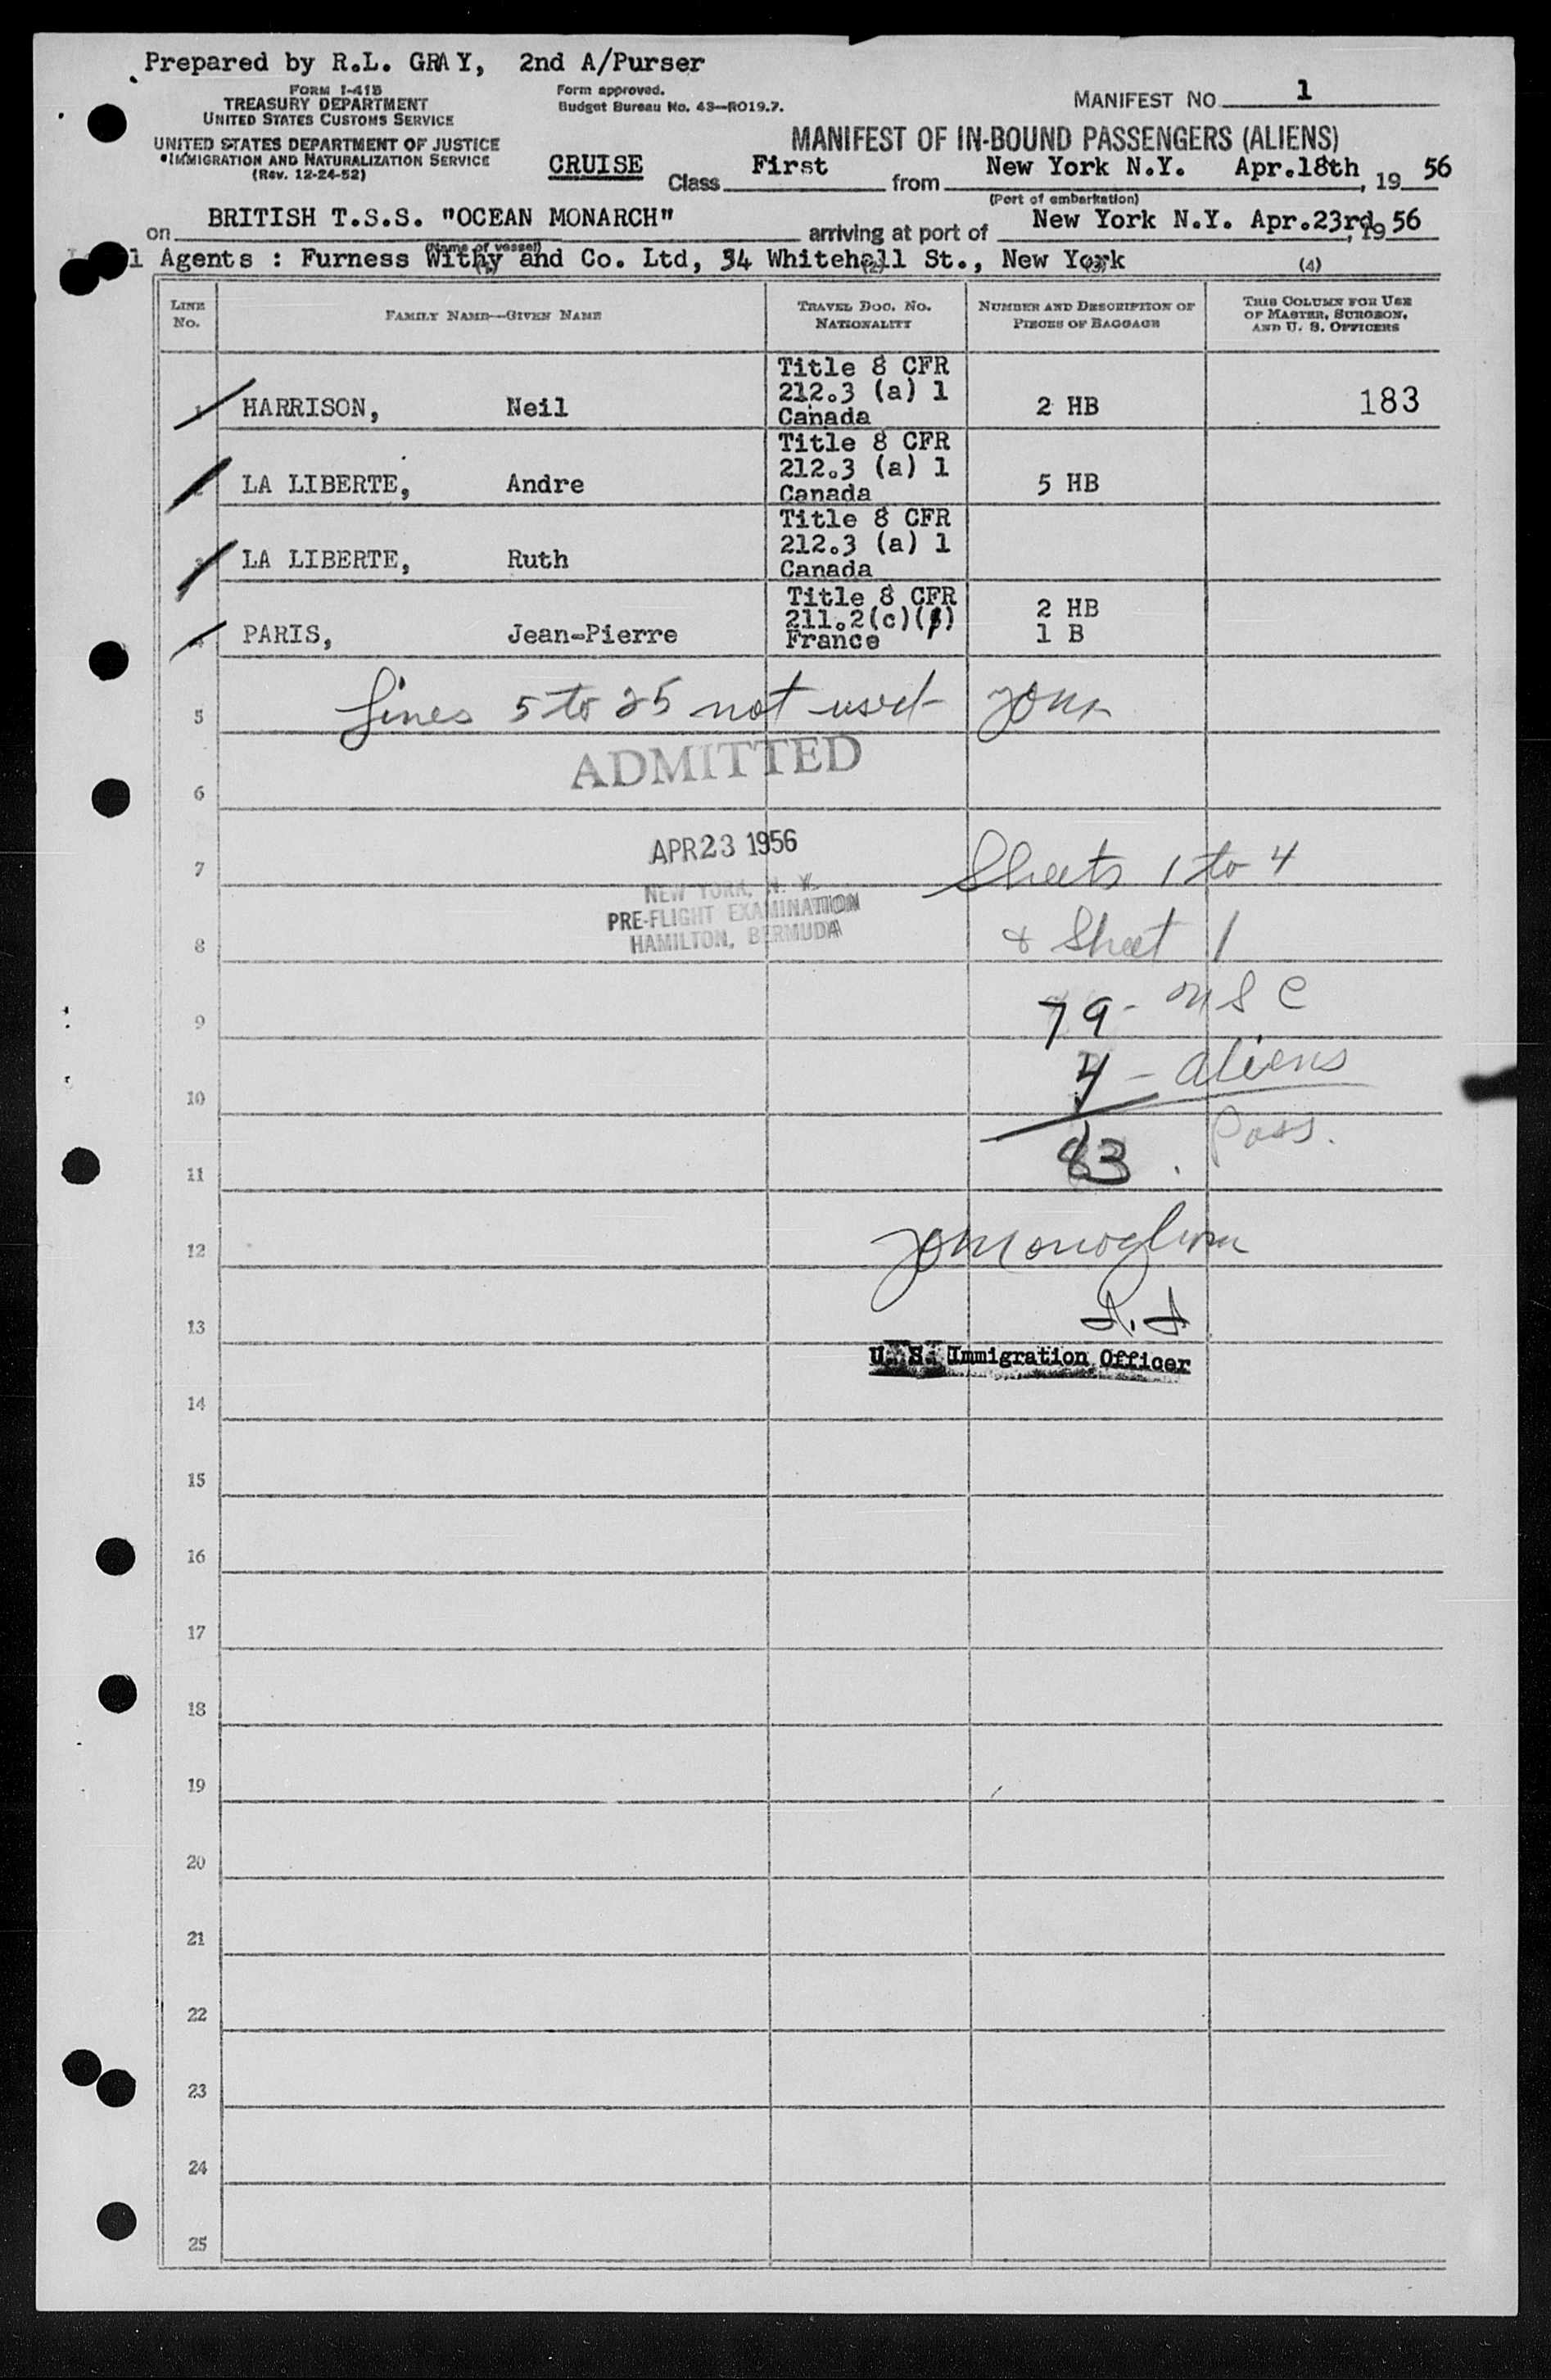 Prepared by R.L. GRAY, 2nd A/Purser
FORM I-415
TREASURY DEPARTMENT
UNITED STATES CUSTOMS SERVICE
UNITED STATES DEPARTMENT OF JUSTICE
IMMIGRATION AND NATURALIZATION SERVICE
(Rev. 12-24-52)
Form approved.
Budget Bureau No. 43—RO19.7.
MANIFEST NO 1
MANIFEST OF IN-BOUND PASSENGERS (ALIENS)
CRUISE Class First from New York N.Y. Apr.18th, 19 56
(Port of embarkation)
on BRITISH T.S.S. "OCEAN MONARCH" arriving at port of New York N.Y. Apr.23rd, 19 56
(Name of vessel)
Agents : Furness Withy and Co. Ltd, 34 Whitehall St., New York
(1) (2) (3) (4)
LINE NO.
FAMILY NAME—GIVEN NAME
TRAVEL DOC. NO.
NATIONALITY
NUMBER AND DESCRIPTION OF
PIECES OF BAGGAGE
THIS COLUMN FOR USE
OF MASTER, SURGEON,
AND U. S. OFFICERS
Title 8 CFR
212.3 (a) 1
1 HARRISON, Neil Canada 2 HB 183
Title 8 CFR
212.3 (a) 1
2 LA LIBERTE, Andre Canada 5 HB
Title 8 CFR
212.3 (a) 1
3 LA LIBERTE, Ruth Canada
Title 8 CFR 2 HB
211.2(c)
4 PARIS, Jean-Pierre France 1 B
5 Lines 5 to 25 not used
ADMITTED
6
APR 23 1956
7 Sheets 1 to 4
NEW YORK, N. Y.
PRE-FLIGHT EXAMINATION
HAMILTON, BERMUDA
8 & Sheet 1
9 79 - USC
10 4 - aliens
11 83. Pass.
12
13
U. S. Immigration Officer
14
15
16
17
18
19
20
21
22
23
24
25